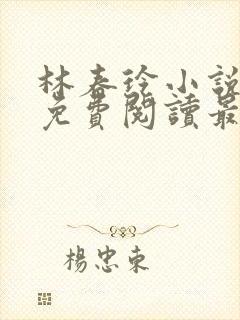 林春玲小說
免費閱讀最
楊忠東